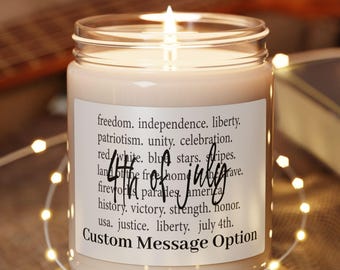 freedom. independence. liberty.
patriotism. unity. celebration.
red. white. blue. stars. stripes.
land of the free. home of the brave.
4th of july
fireworks. parades. america.
history. victory. strength. honor.
usa. justice. liberty. july 4th.
Custom Message Option